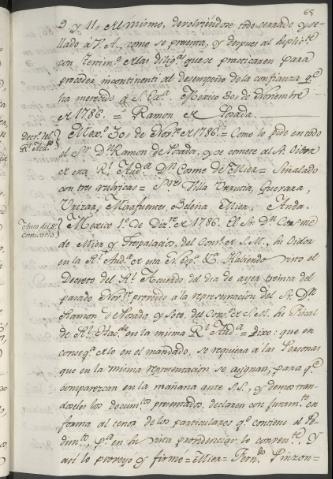 65
2 y 11. al mismo, devolviendose todo serrado y se-
llado á V. A., como se previno, y despues al
con testimo. de las diligs. que se practicaren para
proceder incontinenti al desempeño de la confianza qe.
ha merecido á S. Exa. Mexico 30 de Noviembre
de 1786. = Ramon de Posada
Mexco. 30. de Novre. de 1786. = Como lo pide en todo
el Sor. Dn. Ramon de Posada, y se comete al Sr. Oidor
de esta Rl. Auda. Dn. Cosme de Mier = Señalado
con tres rubricas = Sres. Villa Urrutia, Guevara,
Urizar, Mirafuentes, Beleña, Mier, Anda.
Mexico 1o. de Dizre. de 1786. El Sr. Dn. Cosme
de Mier y Trespalacios, del Consejo de S. M., su Oidor
en la Rl. Auda. de esta N. E. Haviendo visto el
Decreto del Rl. Acuerdo del dia de ayer treinta del
pasado Novre. proveido á la representacion del Sr. Dn.
Ramon de Posada y Soto, del Conso. de S. M. su Fiscal
de Rl. Hacda. en la misma Rl. Auda. = Dixo: que en
conseqa. de lo en el mandado, se requiera á las Personas
que en la misma representacion se asignan, para qe.
comparezcan en la mañana ante S. S., y demostran-
doseles los documtos. presentados, declaren con juramto. en
forma al tenor de los particulares qe. contiene el
pa. en su vista providenciar lo convente. y
así lo proveyó y firmó = Mier = Ferndo. Pinzon =